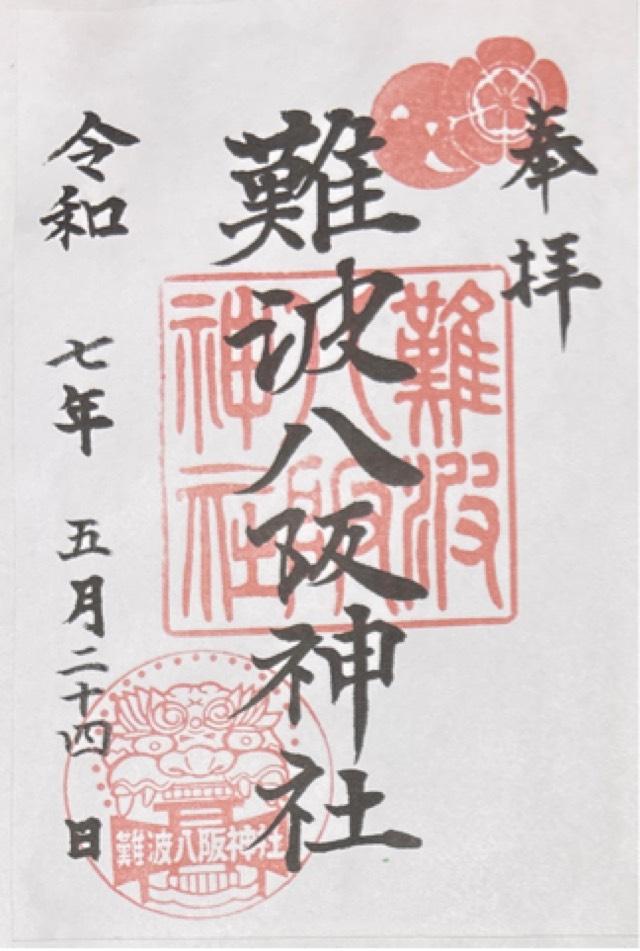 奉拝
難波八阪神社
難波
八阪
神社
令和 七年 五月二十四日
難波八阪神社